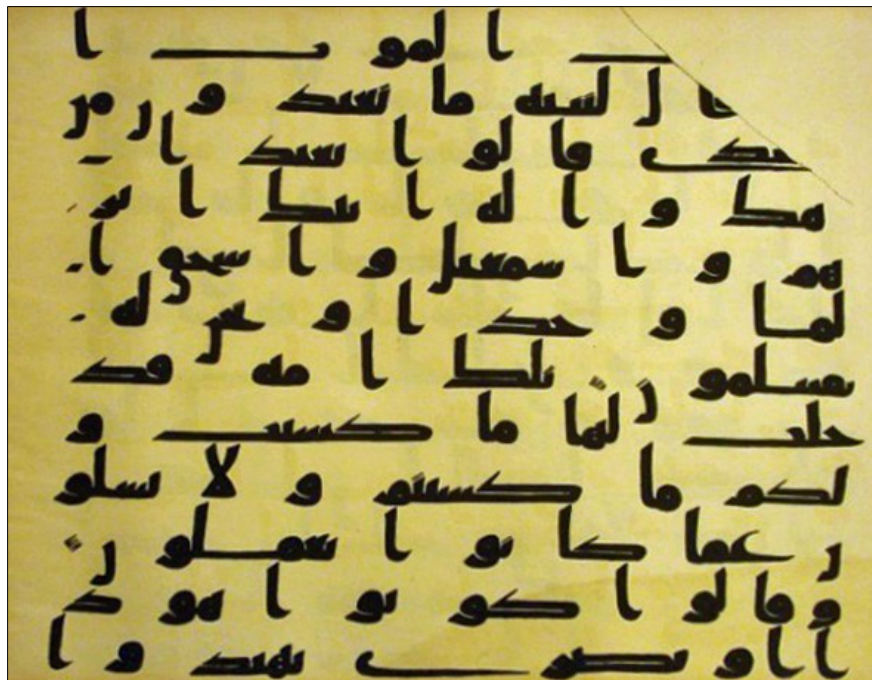 ب الموت ا
قال لبنيه ما تعبد و ن من
بعدى قالوا نعبد ا لـ
هك و اله ابائك ا بر
هيم و ا سمعيل و ا سحق ا
لها و حد ا و نحن له
مسلمو ن تلك ا مه قد
خلت لها ما كسبت و
لكم ما كسبتم و لا تسلو
ن عما كا نو ا يعملو ن
و قا لو ا كو نو ا هو د
ا ا و نصرى تهتد و ا